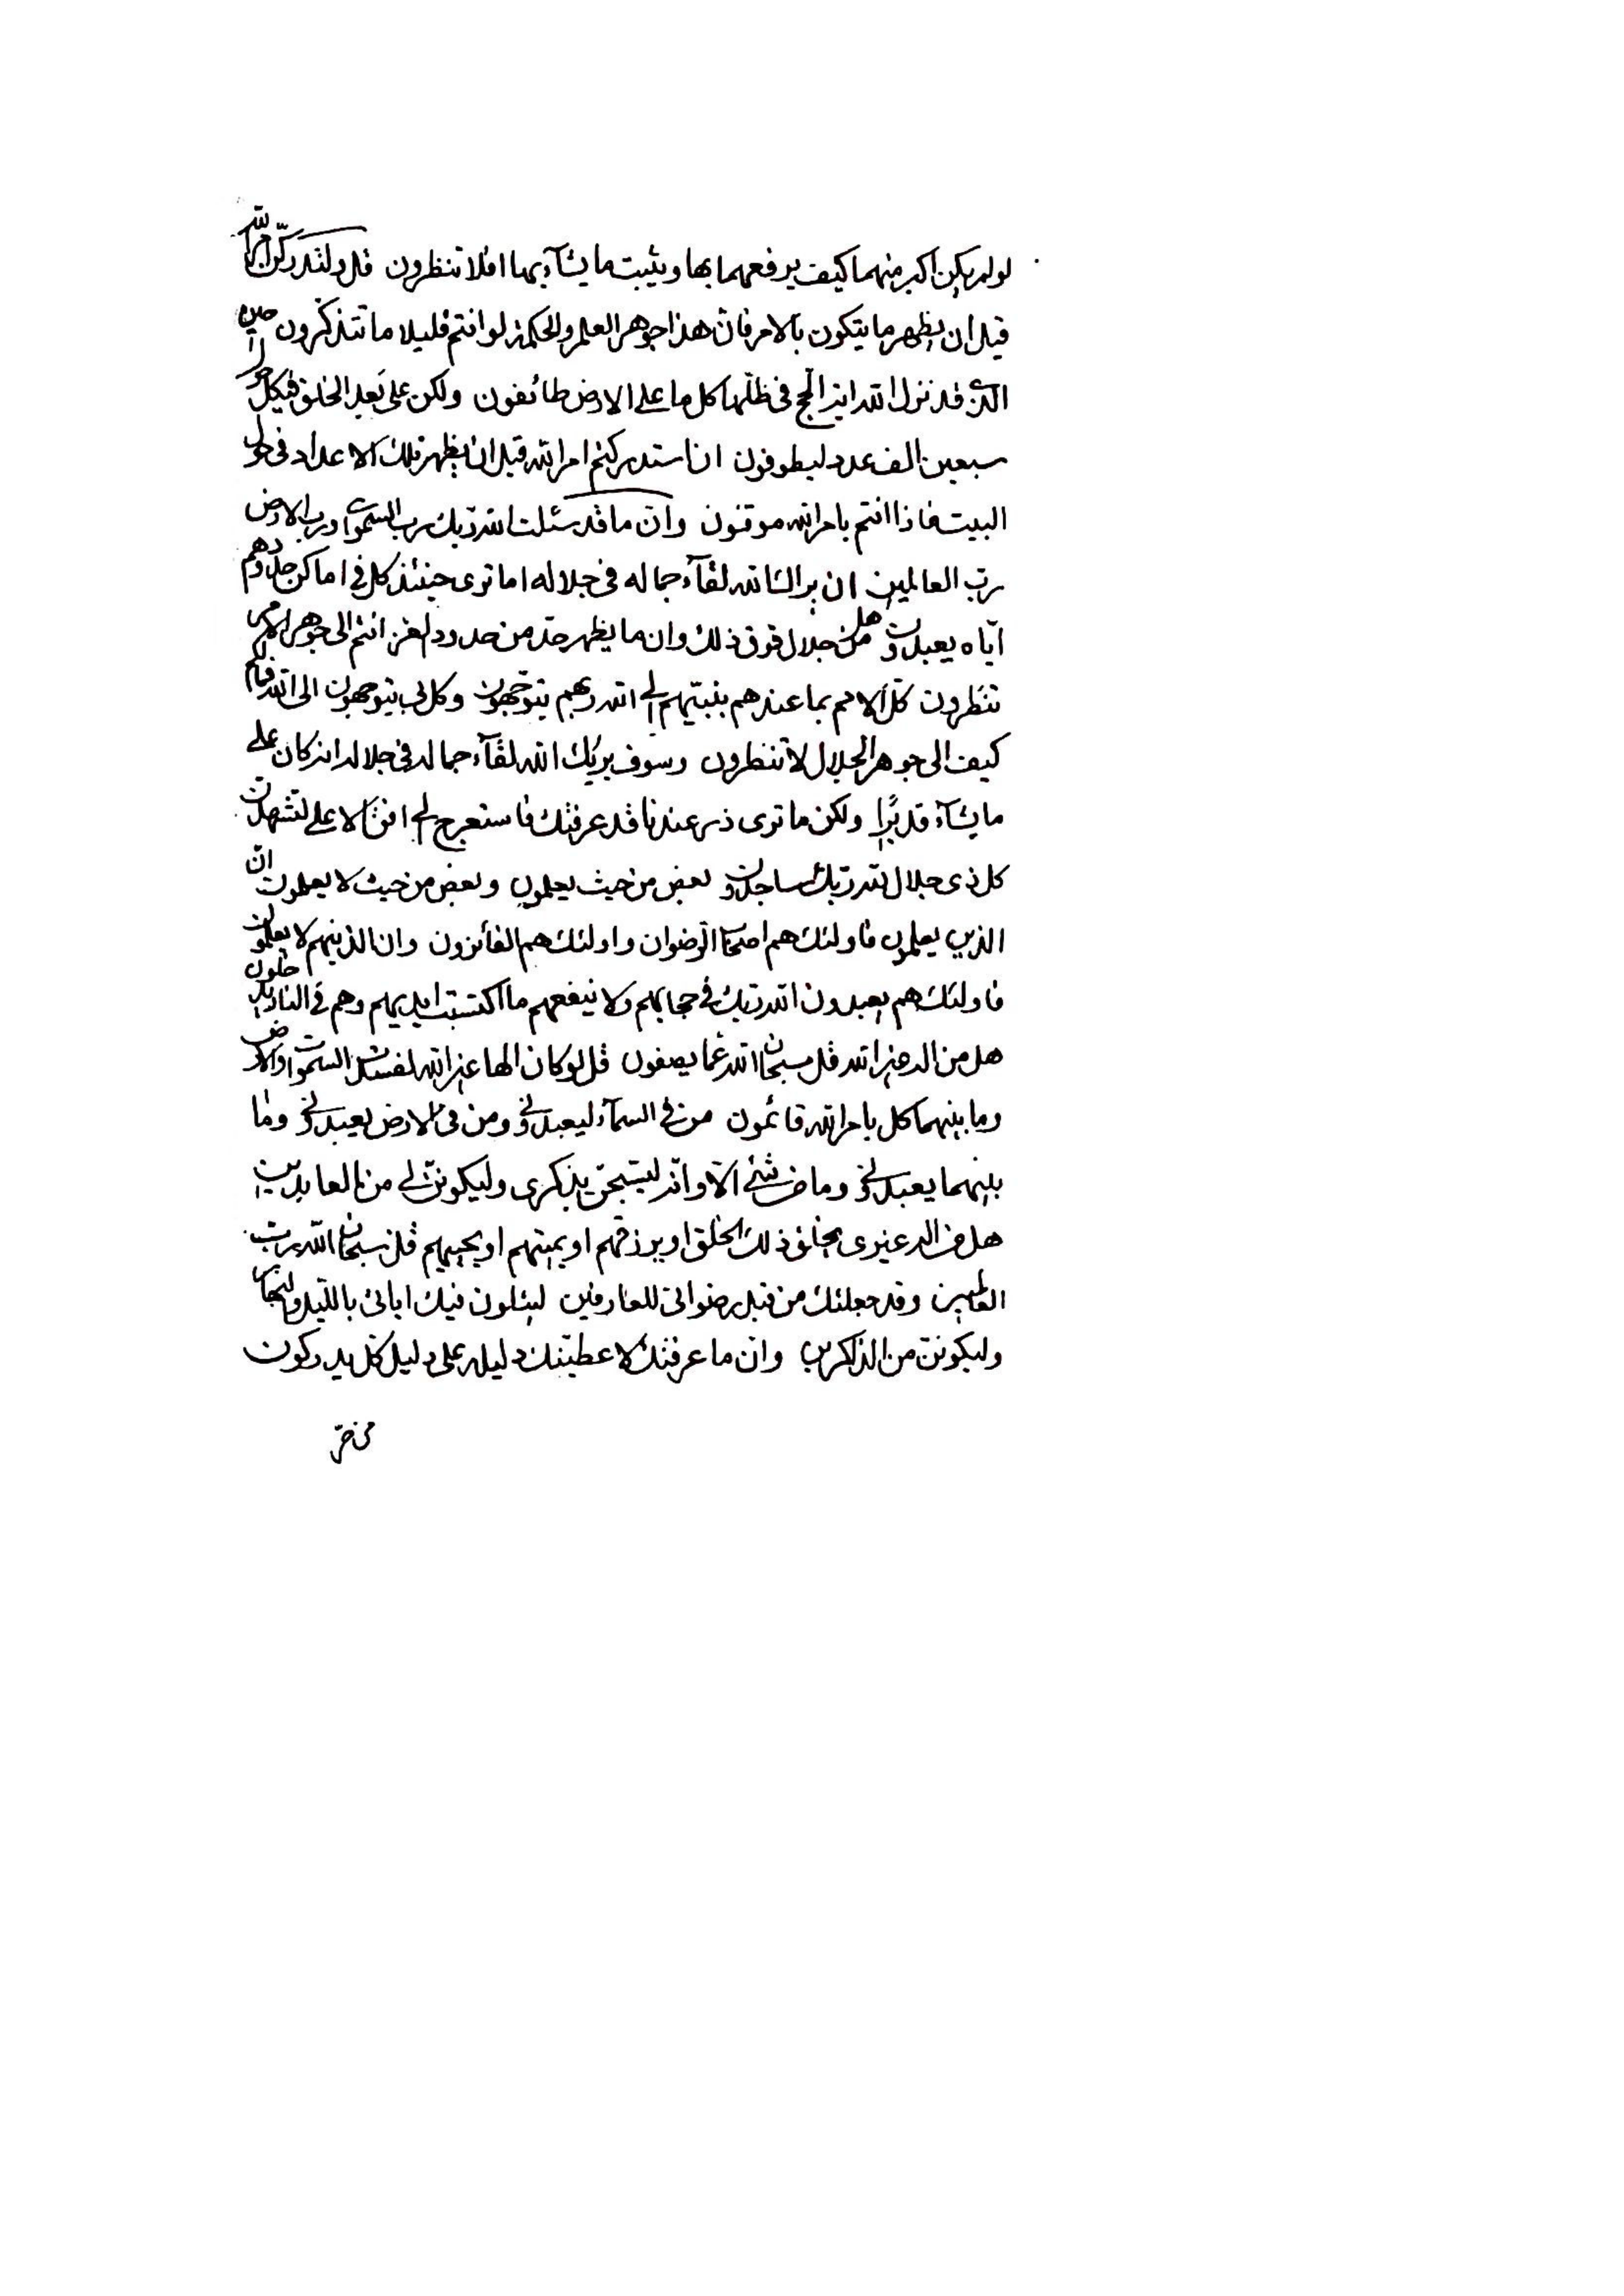 لو لم يكن اكبر منهما كيف يرفعهما بها ويثبت ما يشآء بهما افلا تنظرون قل ولتدركن امر الله
قبل ان يظهر ما يتكون بالامر فان هذا جوهر العلم والحكمة لو انتم قليلا ما تتذكرون حين
الذى قد نزل الله اية الحج فى ظلها كل ما على الارض طائفون ولكن على بعد الخلق فى كل حول
سبعين الف عدد ليطوفون انا ستدركنم امر الله قبل ان يظهر تلك الاعداد فى حول
البيت فاذا انتم بامر الله موقنون وان ما قد سئلت الله ربك رب السموات ورب الارض
رب العالمين ان يراك الله لقآء جماله فى جلاله اما ترى حينئذ كل فى اماكن حدودهم
اياه يعبدون هل من جلال فوق ذلك وان ما يظهر حد من حدود الغير انتم الى جوهر الامر
تنظرون كل الامم بما عندهم بنبيهم الى الله ربهم يتوجهون وكل بى يتوجهون الى الله
كيف الى جوهر الجلال لا تنظرون وسوف يريك الله لقآء جماله فى جلاله انه كان على
ما يشآء قديرا ولكن ما ترى ذر عندنا قد عرفتك فاستعرج الى افق الاعلى لتشهدن
كل ذى جلال لله ربك ساجدون بعض من حيث يعلمون وبعض من حيث لا يعلمون ان
الذين يعلمون فاولئك هم اصحاب الرضوان واولئك هم الفائزون وان الذينهم لا يعلمون
فاولئك هم يعبدون الله ربك فى حجابهم ولا ينفعهم ما اكتسبت ايديهم وهم فى النار يدخلون
هل من اله غير الله قل سبحان الله عما يصفون قل لو كان الها غير الله لفسدت السموات والارض
وما بينهما كل بامر الله قائمون من فى السمآء ليعبدونى ومن فى الارض يعبدونى وما
بينهما يعبدونى وما من شئ الا وانه ليسبحن بذكرى وليكونن لى من العابدين
هل من اله غيرى يخلق ذلك الخلق او يرزقهم او يميتهم او يحييهم قل سبحان الله رب
العالمين وقد جعلتك من قبل رضوانى للعارفين ليتلون فيك اياتى بالليل والنهار
وليكونن من الذاكرين وان ما عرفتك لاعطيتك دليله على دليل كل يدركون